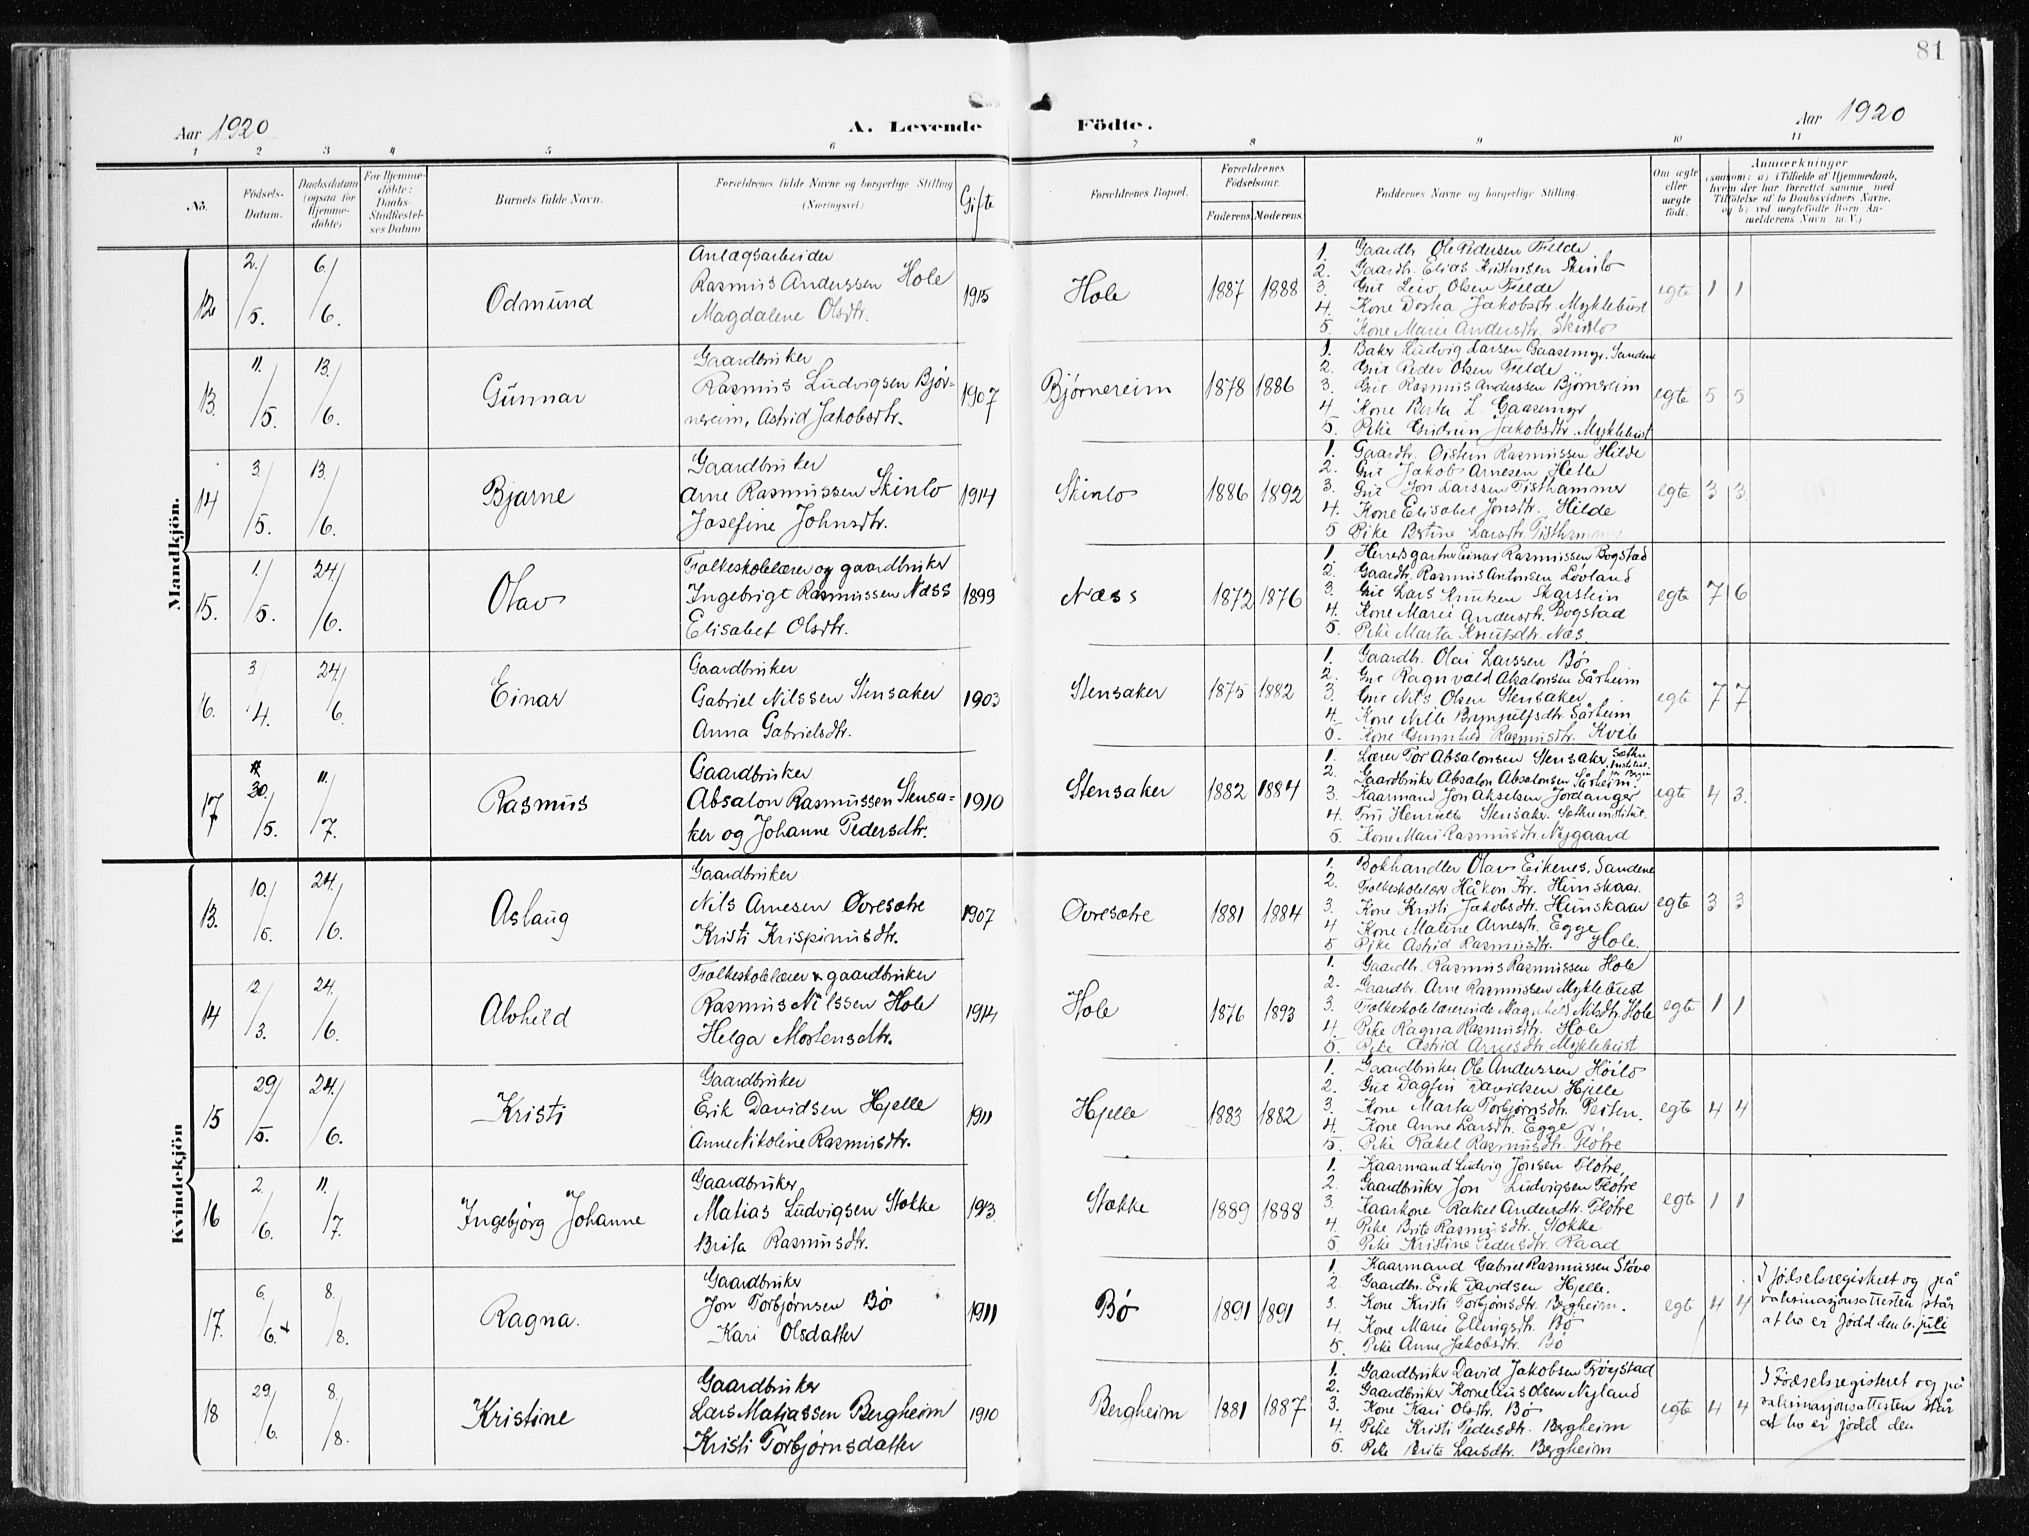 81
Aar 1920
A. Levende
Födte.
Aar 1920
1 2 3 4 5 6 7 8 9 10 11
No.
Födsels-
Datum.
Daabsdatum
(ogsaa for
Hjemme-
döbte)
For Hjemme-
döbte:
Daabs-
Stadfæstel-
ses Datum
Barnets fulde Navn.
Forældrenes fulde Navne og borgerlige Stilling
(Næringsvei.)
Gifte
Forældrenes Bopæl.
Forældrenes
Födselsaar.
Faderens. Moderens.
Faddernes Navne og borgerlige Stilling.
Om ægte
eller
uægte
födt.
Anmærkninger
(saasom: a) i Tilfælde af Hjemmedaab,
hvem der har forrettet samme, med
Tilföielse af to Daabsvidners Navne,
og b) ved uægtefödte Börn An-
melderens Navn m. V.)
Mandkjön.
12 2/5. 6/6. Odmund
Anlægsarbeider
Rasmus Anderssen Hole
Magdalene Olsdtr.
1915 Hole 1887 1888
1. Gaardbr. Ole Pedersen Fjelde
2. Gaardbr. Elias Kristensen Skinlo
3. Gut Leiv Olsen Fjelde
4. Kone Dortea Jakobsdtr. Myklebust
5. Kone Marie Andersdtr. Skinlo
egte 1 1
13. 11/5. 13/6. Gunnar
Gaardbruker
Rasmus Ludvigsen Bjør-
nereim, Astrid Jakobsdtr.
1907 Bjørnereim 1878 1886
1. Baker Ludvig Larsen Gaasemyr. Sandene
2. Gut Peder Olsen Fjelde
3. Gut Rasmus Anderssen Bjørnereim
4. Kone Berta L. Gaasemyr
5. Pike Gudrun Jakobsdtr. Myklebust
egte 5 5
14 3/5. 13/6. Bjarne
Gaardbruker
Arne Rasmussen Skinlo
Josefine Johnsdtr.
1914 Skinlo 1886 1892
1. Gaardbr. Øistein Rasmussen Hilde
2. Gut Jakob Arnesen Helle
3. Gut Jon Larssen Tisthammer
4. Kone Elisabet Jonsdtr. Hilde
5 Pike Bertine Larsdtr. Tisthammer
egte 3 3
15. 1/5. 24/6. Olav
Folkeskolelærer og gaardbruker
Ingebrigt Rasmussen Næss
Elisabet Olsdtr.
1899 Næss 1872 1876
1. Herredsgartner Einar Rasmussen Bogstad
2. Gaardbr. Rasmus Antonsen Løvland
3. Gut Lars Knutsen Skarstein
4. Kone Marie Andersdtr. Bogstad
5. Pike Marta Knutsdtr. Næs
egte 7 6
16. 3/4. 24/6. Einar
Gaardbruker
Gabriel Nilssen Stensaker
Anna Gabrielsdtr.
1903 Stensaker 1875 1882
1. Gaardbr. Olai Larssen Bø
2. Gut Ragnvald Absalonsen Sårheim
3. Gut Nils Olsen Stensaker
4. Kone Nille Brynjulfsdtr. Sårheim
5. Kone Gunnhild Rasmusdtr. Kvile
egte 7 7
17 30/5. 11/7. Rasmus
Gaardbruker
Absalon Rasmussen Stensa-
ker og Johanne Pedersdtr.
1910 Stensaker 1882 1884
1. Lærer Tor Absalonsen Stensaker,
2. Gaardbruker Absalon Absalonsen Sårheim.
3. Kaarmand Jon Akselsen Jordanger
4. Fru Henriette Stensaker.
5. Kone Mari Rasmusdtr. Nygaard
egte 4 3.
Kvindekjön
13. 10/5. 24/6. Aslaug
Gaardbruker
Nils Arnesen Øvresætre
Kristi Krispinusdtr.
1907 Øvresætre 1881 1884
1. Bokhandler Olav Eikenes. Sandene
2. Folkeskolelærer Håkon Kr. Hunskaar.
3. Kone Kristi Jakobsdtr. Hunskaar
4 Kone Maline Arnesdtr. Egge
5 Pike Astrid Rasmusdtr. Hole.
egte 3 3
14 2/3. 24/6. Alvhild
Folkeskolelærer & gaardbruker
Rasmus Nilssen Hole
Helga Mortensdtr.
1914 Hole 1876 1893
1. Gaardbr. Rasmus Rasmussen Hole
2. Gaardbr. Arne Rasmussen Myklebust
3. Folkeskolelærerinde Magnhild Nilsdtr. Hole
4. Pike Ragna Rasmusdtr. Hole
5. Pike Astrid Arnesdtr. Myklebust
egte 1 1
15 29/5. 24/6. Kristi
Gaardbruker
Erik Davidsen Hjelle
Anne Nikoline Rasmusdtr.
1911 Hjelle 1883 1882
1. Gaardbruker Ole Anderssen Høilo
2. Gut Dagfin Davidsen Hjelle
3. Kone Marta Torbjørnsdtr.
4. Kone Anne Larsdtr. Egge
5. Pike Rakel Rasmusdtr. Fløtre
egte 4 4
16 2/6. 11/7. Ingebjørg Johanne
Gaardbruker
Matias Ludvigsen Stokke
Brita Rasmusdtr.
1913. Stokke 1889 1888
1. Kaarmand Ludvig Jonsen Fløtre
2. Gaardbruker Jon Ludvigsen Fløtre
3. Kaarkone Rakel Andersdtr. Fløtre
4. Pike Brite Rasmusdtr. Stokke
5. Pike Kristine Pedersdtr. Raad
egte 1 1
17. 6/6.+ 8/8. Ragna.
Gaardbruker
Jon Torbjørnsen Bø
Kari Olsdatter
1911 Bø 1891 1891
1. Kaarmand Gabriel Rasmussen Støve
2. Gaardbr. Erik Davidsen Hjelle.
3. Kone Kristi Torbjørnsdtr. Bergheim.
4. Kone Marie Ellingsdtr. Bø
5. Pike Anne Jakobsdtr. Bø
egte 4 4
I fødselsregistret og på
vaksinasjonsattesten står
at ho er fødd den 6. juli
18 29/6. 8/8. Kristine
Gaardbruker
Lars Matiassen Bergheim
Kristi Torbjørnsdatter
1910 Bergheim 1881 1887
1. Gaardbruker David Jakobsen Frøystad
2. Gaardbruker Kornelius Olsen Nyland
3. Kone Kari Olsdtr. Bø
4. Pike Kristi Pedersdtr. Bergheim
5. Pike Brite Larsdtr. Bergheim
egte 4 4
I Fødselsregisteret og på
vaksinasjonsattesten står
at ho er fødd den